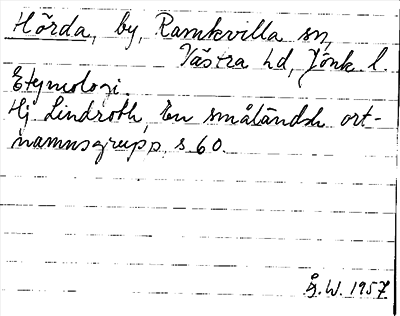 Hörda, by, Ramkvilla sn,
Västra hd, Jönk. l.
Etymologi.
Hj Lindroth, En småländsk ort-
namnsgrupp s 60.
Å. W. 1957